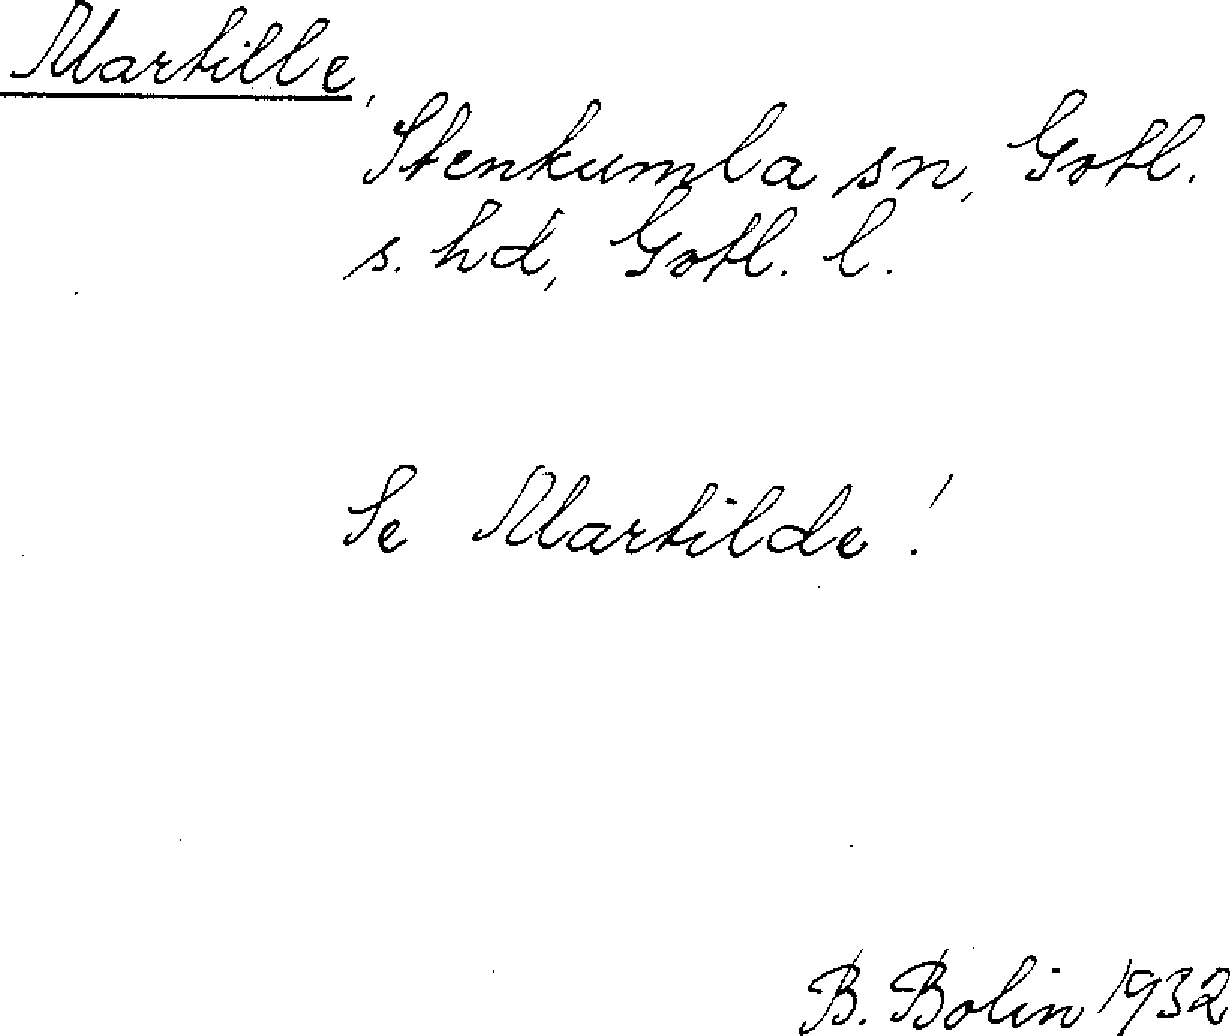 Martille,
Stenkumla sn, Gotl.
s. hd, Gotl. l.
Se Martilde!
B. Bolin 1932